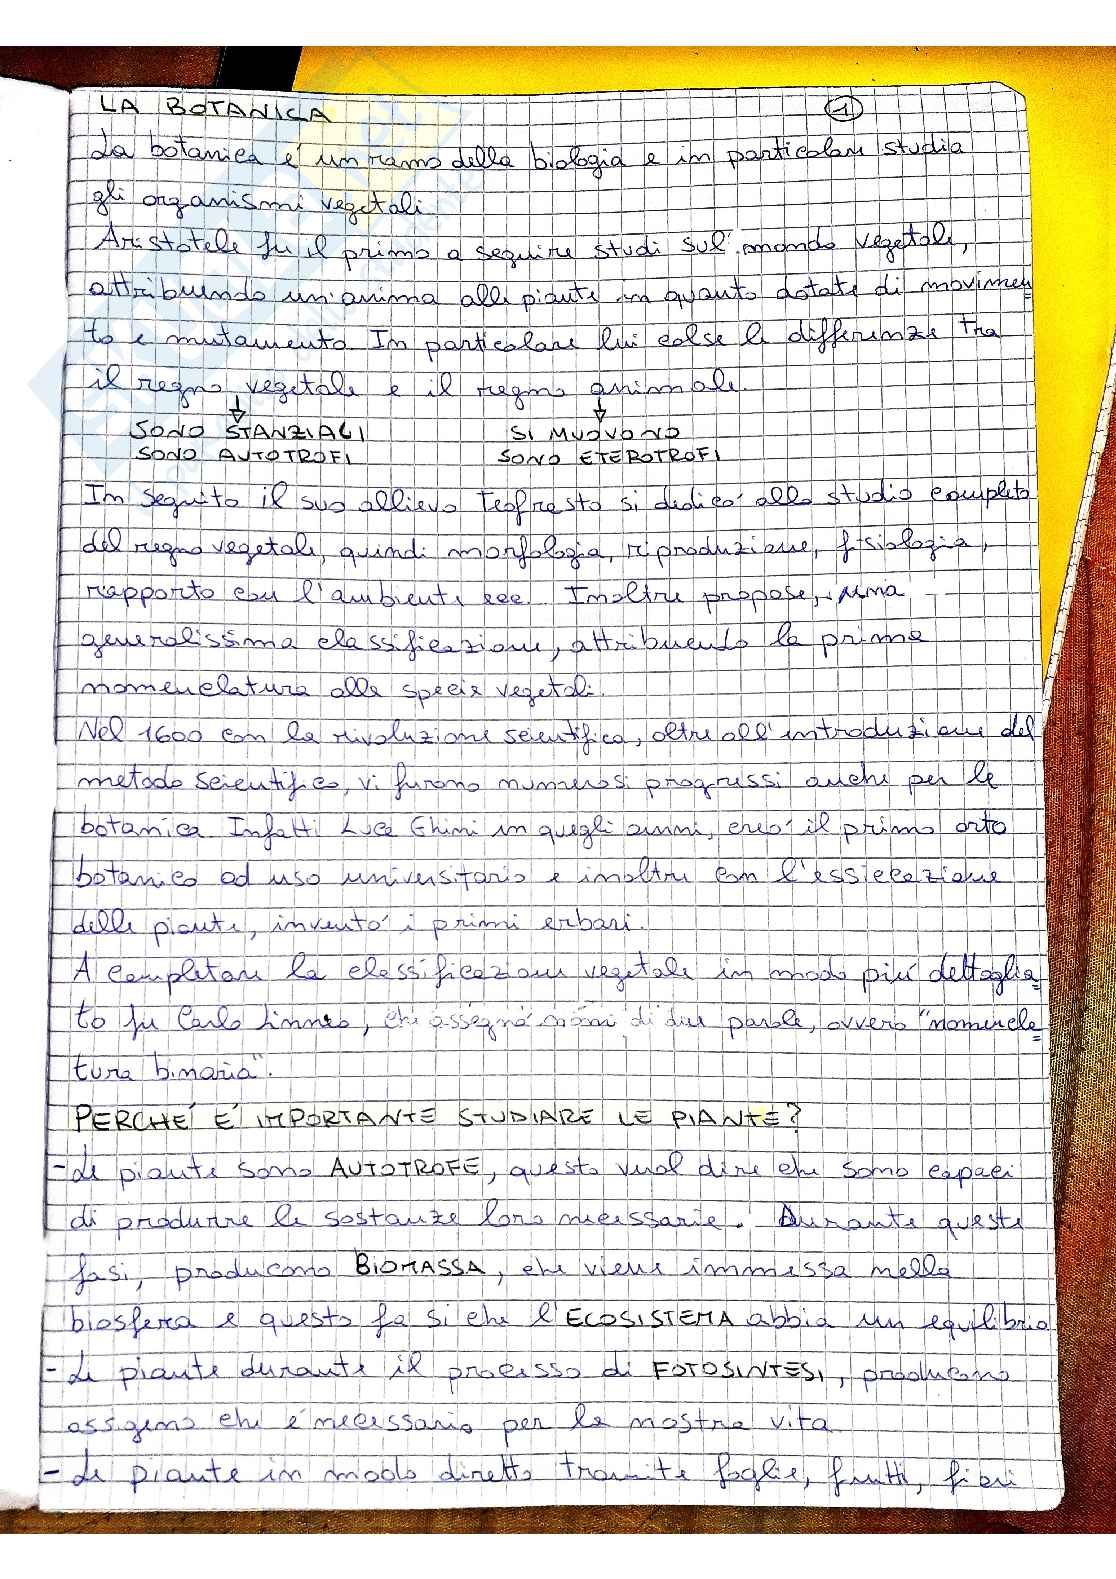 LA BOTANICA
1
La botanica é un ramo della biologia e in particolare studia
gli organismi vegetali.
Aristotele fu il primo a seguire studi sul mondo vegetale,
attribuendo un'anima alle piante in quanto dotate di movimen
to e mutamento. In particolare lui colse le differenze tra
il regno vegetale e il regno animale.
SONO STANZIALI SI MUOVONO
SONO AUTOTROFI SONO ETEROTROFI
In seguito il suo allievo Teofresto si dedicó allo studio completo
del regno vegetale, quindi morfologia, riproduzione, fisiologia,
rapporto con l'ambiente ecc. Inoltre propose, una
generalissima classificazione, attribuendo la prima
nomenclatura alle specie vegetali.
Nel 1600 con la rivoluzione scientifica, oltre all'introduzione del
metodo scientifico, vi furono numerosi progressi anche per la
botanica. Infatti Luca Ghini in quegli anni, creó il primo orto
botanico ad uso universitario e inoltre con l'essiccazione
delle piante, inventó i primi erbari.
A completare la classificazione vegetale in modo piú dettaglia
to fu Carlo Linneo, che assegnó nomi di due parole, ovvero "nomencla
tura binaria".
PERCHÉ É IMPORTANTE STUDIARE LE PIANTE?
- Le piante sono AUTOTROFE, questo vuol dire che sono capaci
di produrre le sostanze loro necessarie. Durante queste
fasi, producono BIOMASSA, che viene immessa nella
biosfera e questo fa si che l'ECOSISTEMA abbia un equilibrio
- Le piante durante il processo di FOTOSINTESI, producono
ossigeno che é necessario per la nostra vita
- Le piante in modo diretto tramite foglie, frutti, fiori